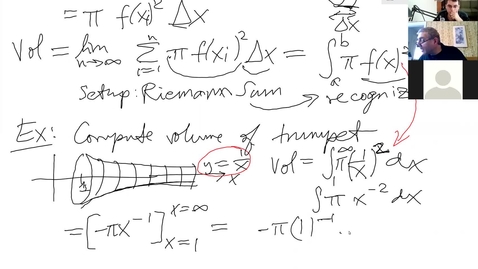 = π f(xᵢ)² Δx
Vol = lim n→∞ Σ i=1 n π f(xᵢ)² Δx = ∫ₐᵇ π f(x)²
Setup: Riemann Sum → recogniz
Ex: Compute volume of trumpet
y = 1/x
x
1
Vol = ∫₁^∞ π(1/x)² dx
∫ π x⁻² dx
= [-πx⁻¹] x=1 x=∞ = -π(1)⁻¹ ..